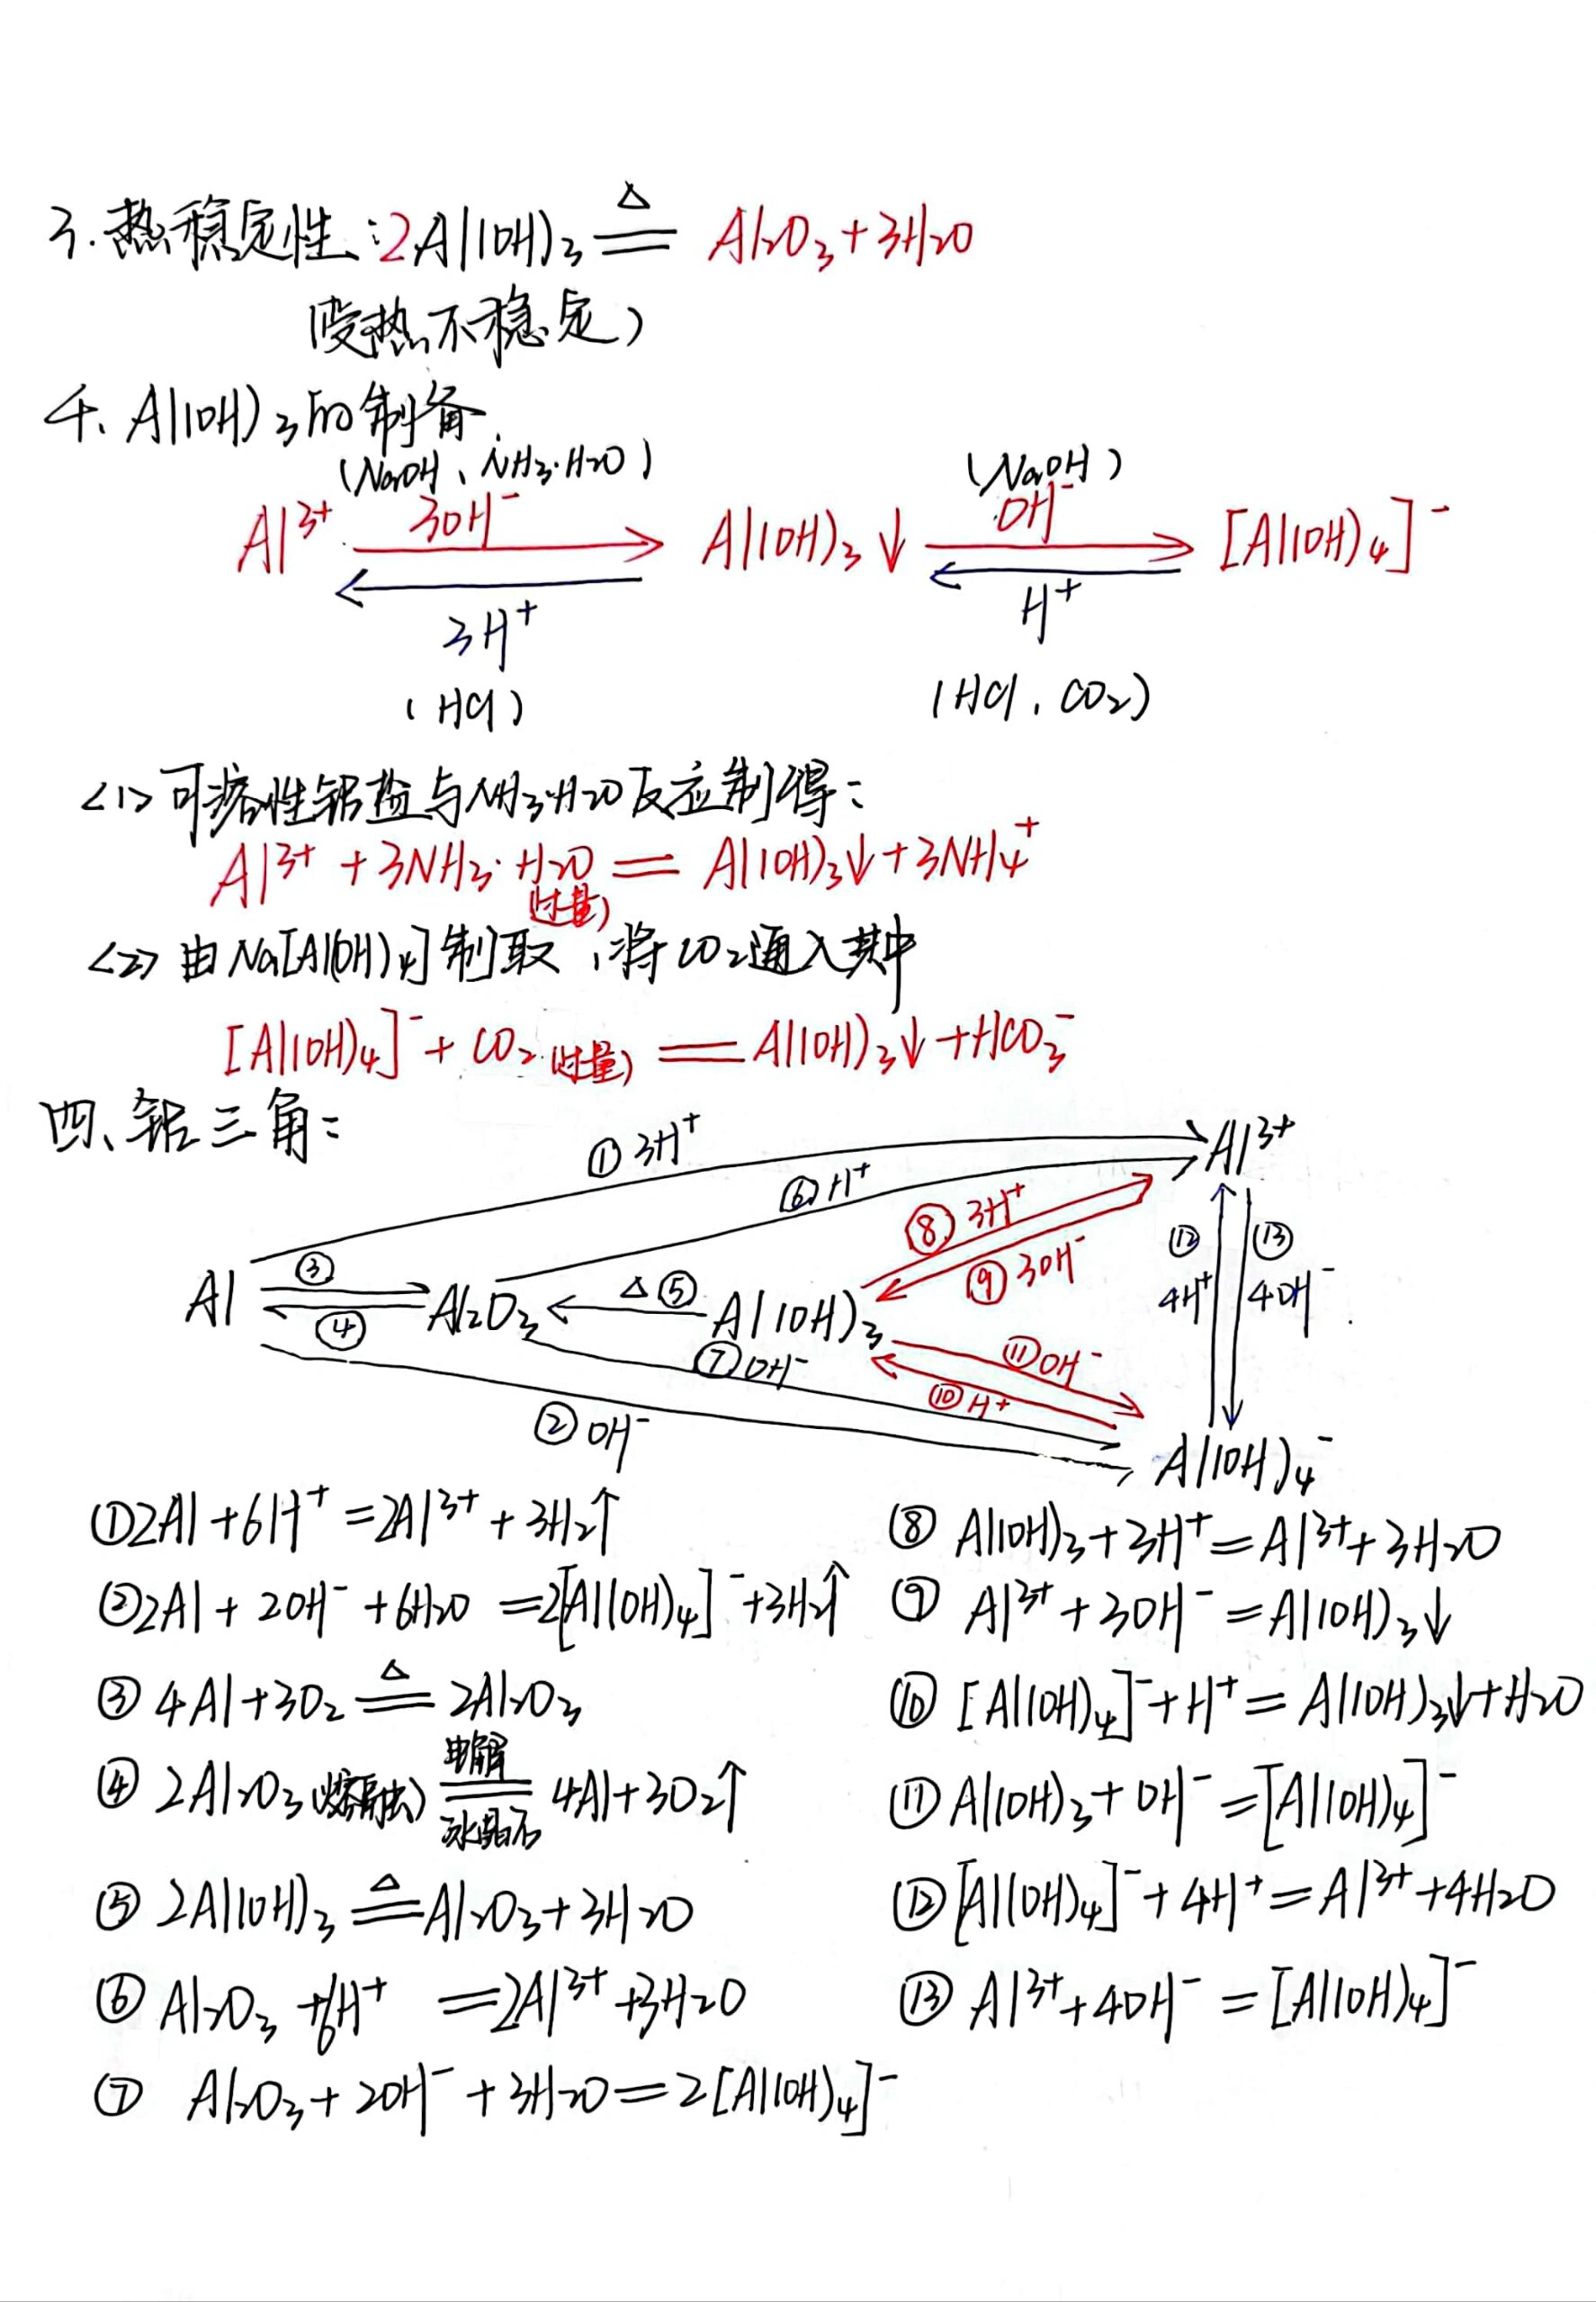 3.热稳定性:2Al(OH)₃ ≜ Al₂O₃+3H₂O
(受热不稳定)
4、Al(OH)₃的制备
(NaOH、NH₃·H₂O) (NaOH)
Al³⁺ 3OH⁻ Al(OH)₃↓ OH⁻ [Al(OH)₄]⁻
3H⁺ H⁺
(HCl) (HCl, CO₂)
<1>可溶性铝盐与NH₃·H₂O反应制得:
Al³⁺ + 3NH₃·H₂O = Al(OH)₃↓+3NH₄⁺
(过量)
<2>由Na[Al(OH)₄]制取,将CO₂通入其中
[Al(OH)₄]⁻+ CO₂(过量) = Al(OH)₃↓+HCO₃⁻
四、铝三角:
①3H⁺ Al³⁺
⑥H⁺
⑧3H⁺
⑨3OH⁻
⑫ ⑬
4H⁺ 4OH⁻
Al ③ ④ Al₂O₃ △⑤ Al(OH)₃
⑦OH⁻ ⑪OH⁻
⑩H⁺
②OH⁻ Al(OH)₄⁻
①2Al+6H⁺=2Al³⁺+3H₂↑
②2Al+2OH⁻+6H₂O=2[Al(OH)₄]⁻+3H₂↑
③4Al+3O₂ ≜ 2Al₂O₃
④2Al₂O₃(熔融) 电解 冰晶石 4Al+3O₂↑
⑤2Al(OH)₃ ≜ Al₂O₃+3H₂O
⑥Al₂O₃+6H⁺=2Al³⁺+3H₂O
⑦Al₂O₃+2OH⁻+3H₂O=2[Al(OH)₄]⁻
⑧Al(OH)₃+3H⁺=Al³⁺+3H₂O
⑨Al³⁺+3OH⁻=Al(OH)₃↓
⑩[Al(OH)₄]⁻+H⁺=Al(OH)₃↓+H₂O
⑪Al(OH)₃+OH⁻=[Al(OH)₄]⁻
⑫[Al(OH)₄]⁻+4H⁺=Al³⁺+4H₂O
⑬Al³⁺+4OH⁻=[Al(OH)₄]⁻